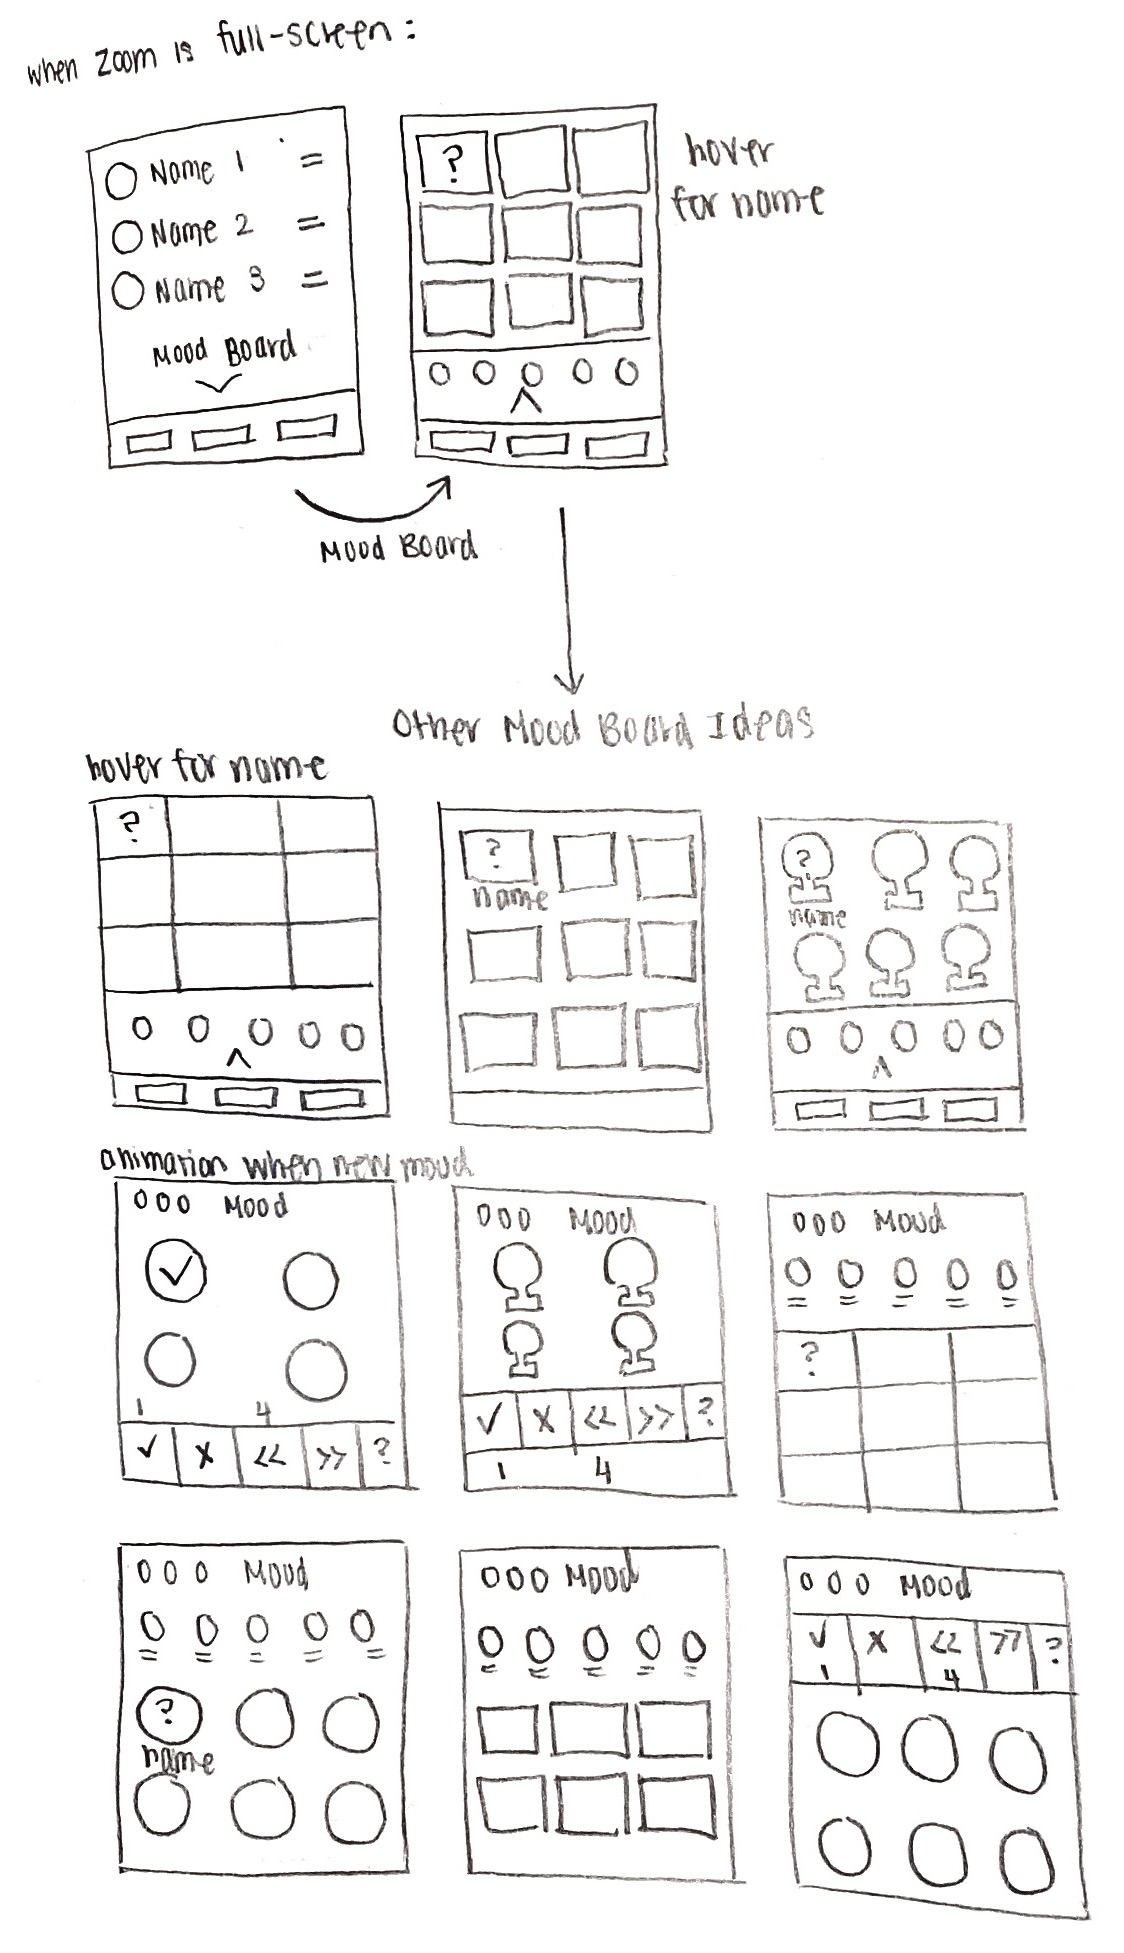 when Zoom is full-screen:
Name 1 =
Name 2 =
Name 3 =
Mood Board
?
hover
for name
Mood Board
Other Mood Board Ideas
hover for name
?
?
name
?
name
animation when new mood
000 Mood
✓
1 4
✓ x << >> ?
000 Mood
✓ x << >> ?
1 4
000 Mood
?
000 Mood
?
name
000 Mood
000 Mood
✓ x << >> ?
1 4